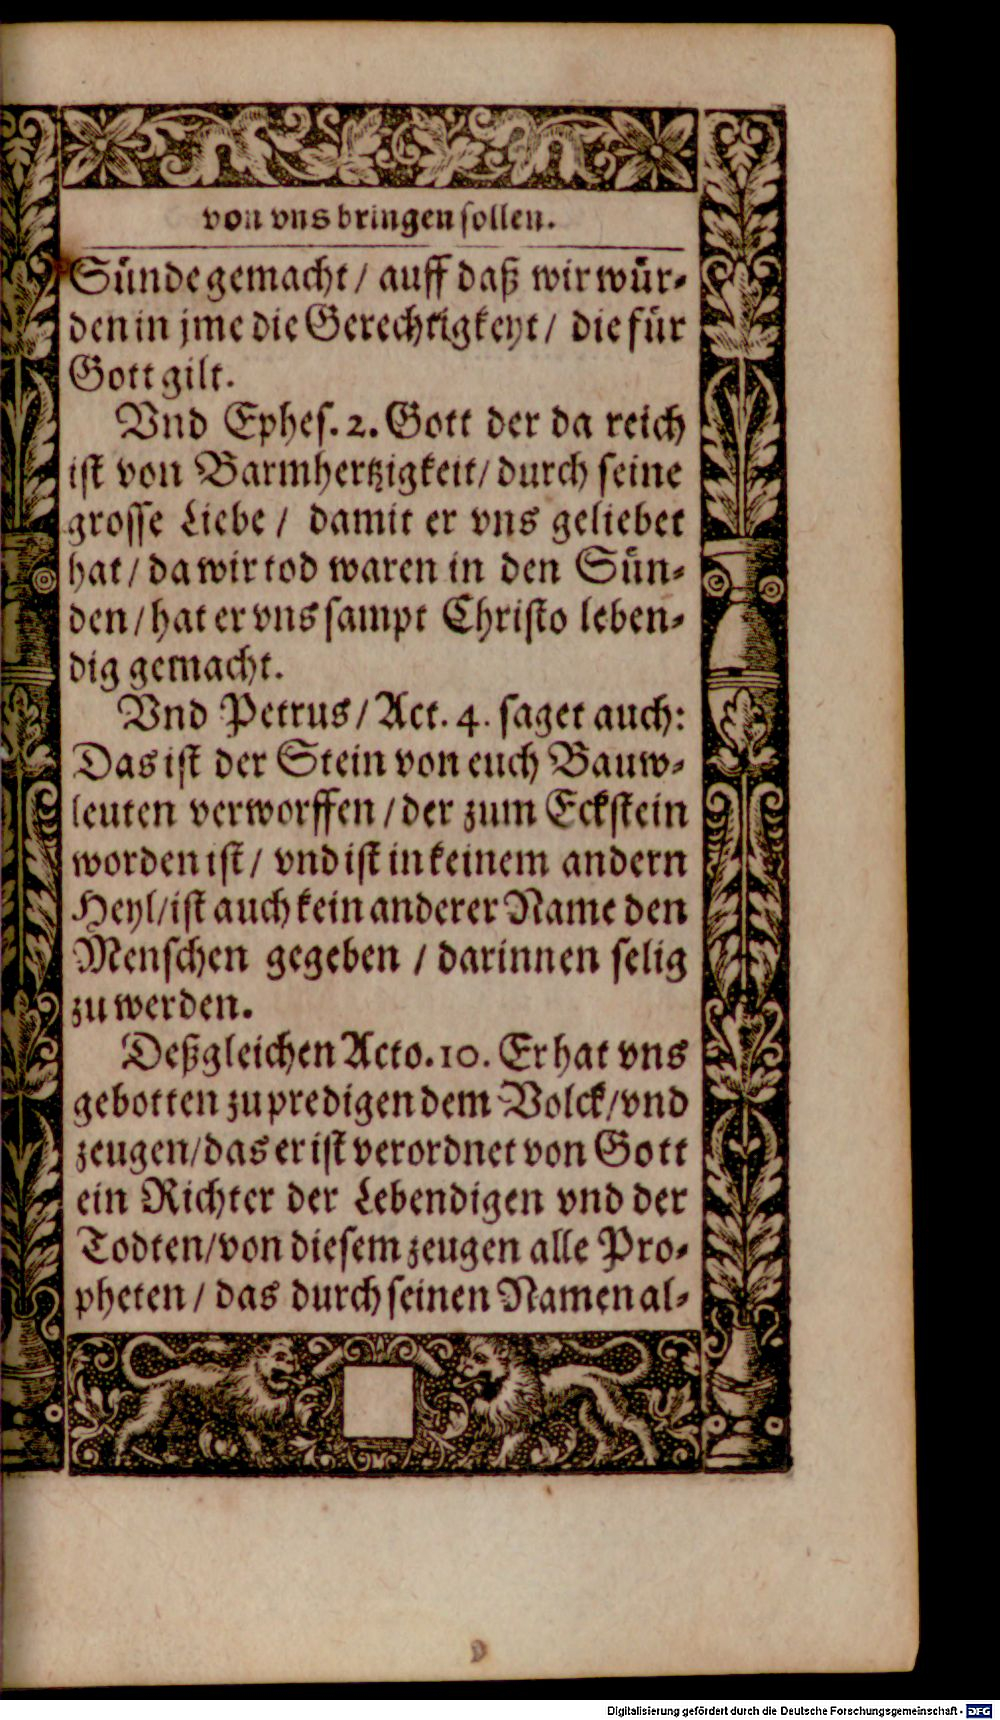 von vns bringen sollen.
Sünde gemacht / auff daß wir wür-
den in jme die Gerechtigkeyt / die für
Gott gilt.
Vnd Ephes. 2. Gott der da reich
ist von Barmhertzigkeit / durch seine
grosse Liebe / damit er vns geliebet
hat / da wir tod waren in den Sün-
den / hat er vns sampt Christo leben-
dig gemacht.
Vnd Petrus / Act. 4. saget auch:
Das ist der Stein von euch Bauw-
leuten verworffen / der zum Eckstein
worden ist / vnd ist in keinem andern
Heyl / ist auch kein anderer Name den
Menschen gegeben / darinnen selig
zu werden.
Deßgleichen Acto. 10. Er hat vns
gebotten zu predigen dem Volck / vnd
zeugen / das er ist verordnet von Gott
ein Richter der Lebendigen vnd der
Todten / von diesem zeugen alle Pro-
pheten / das durch seinen Namen al-
Digitalisierung gefördert durch die Deutsche Forschungsgemeinschaft - DFG